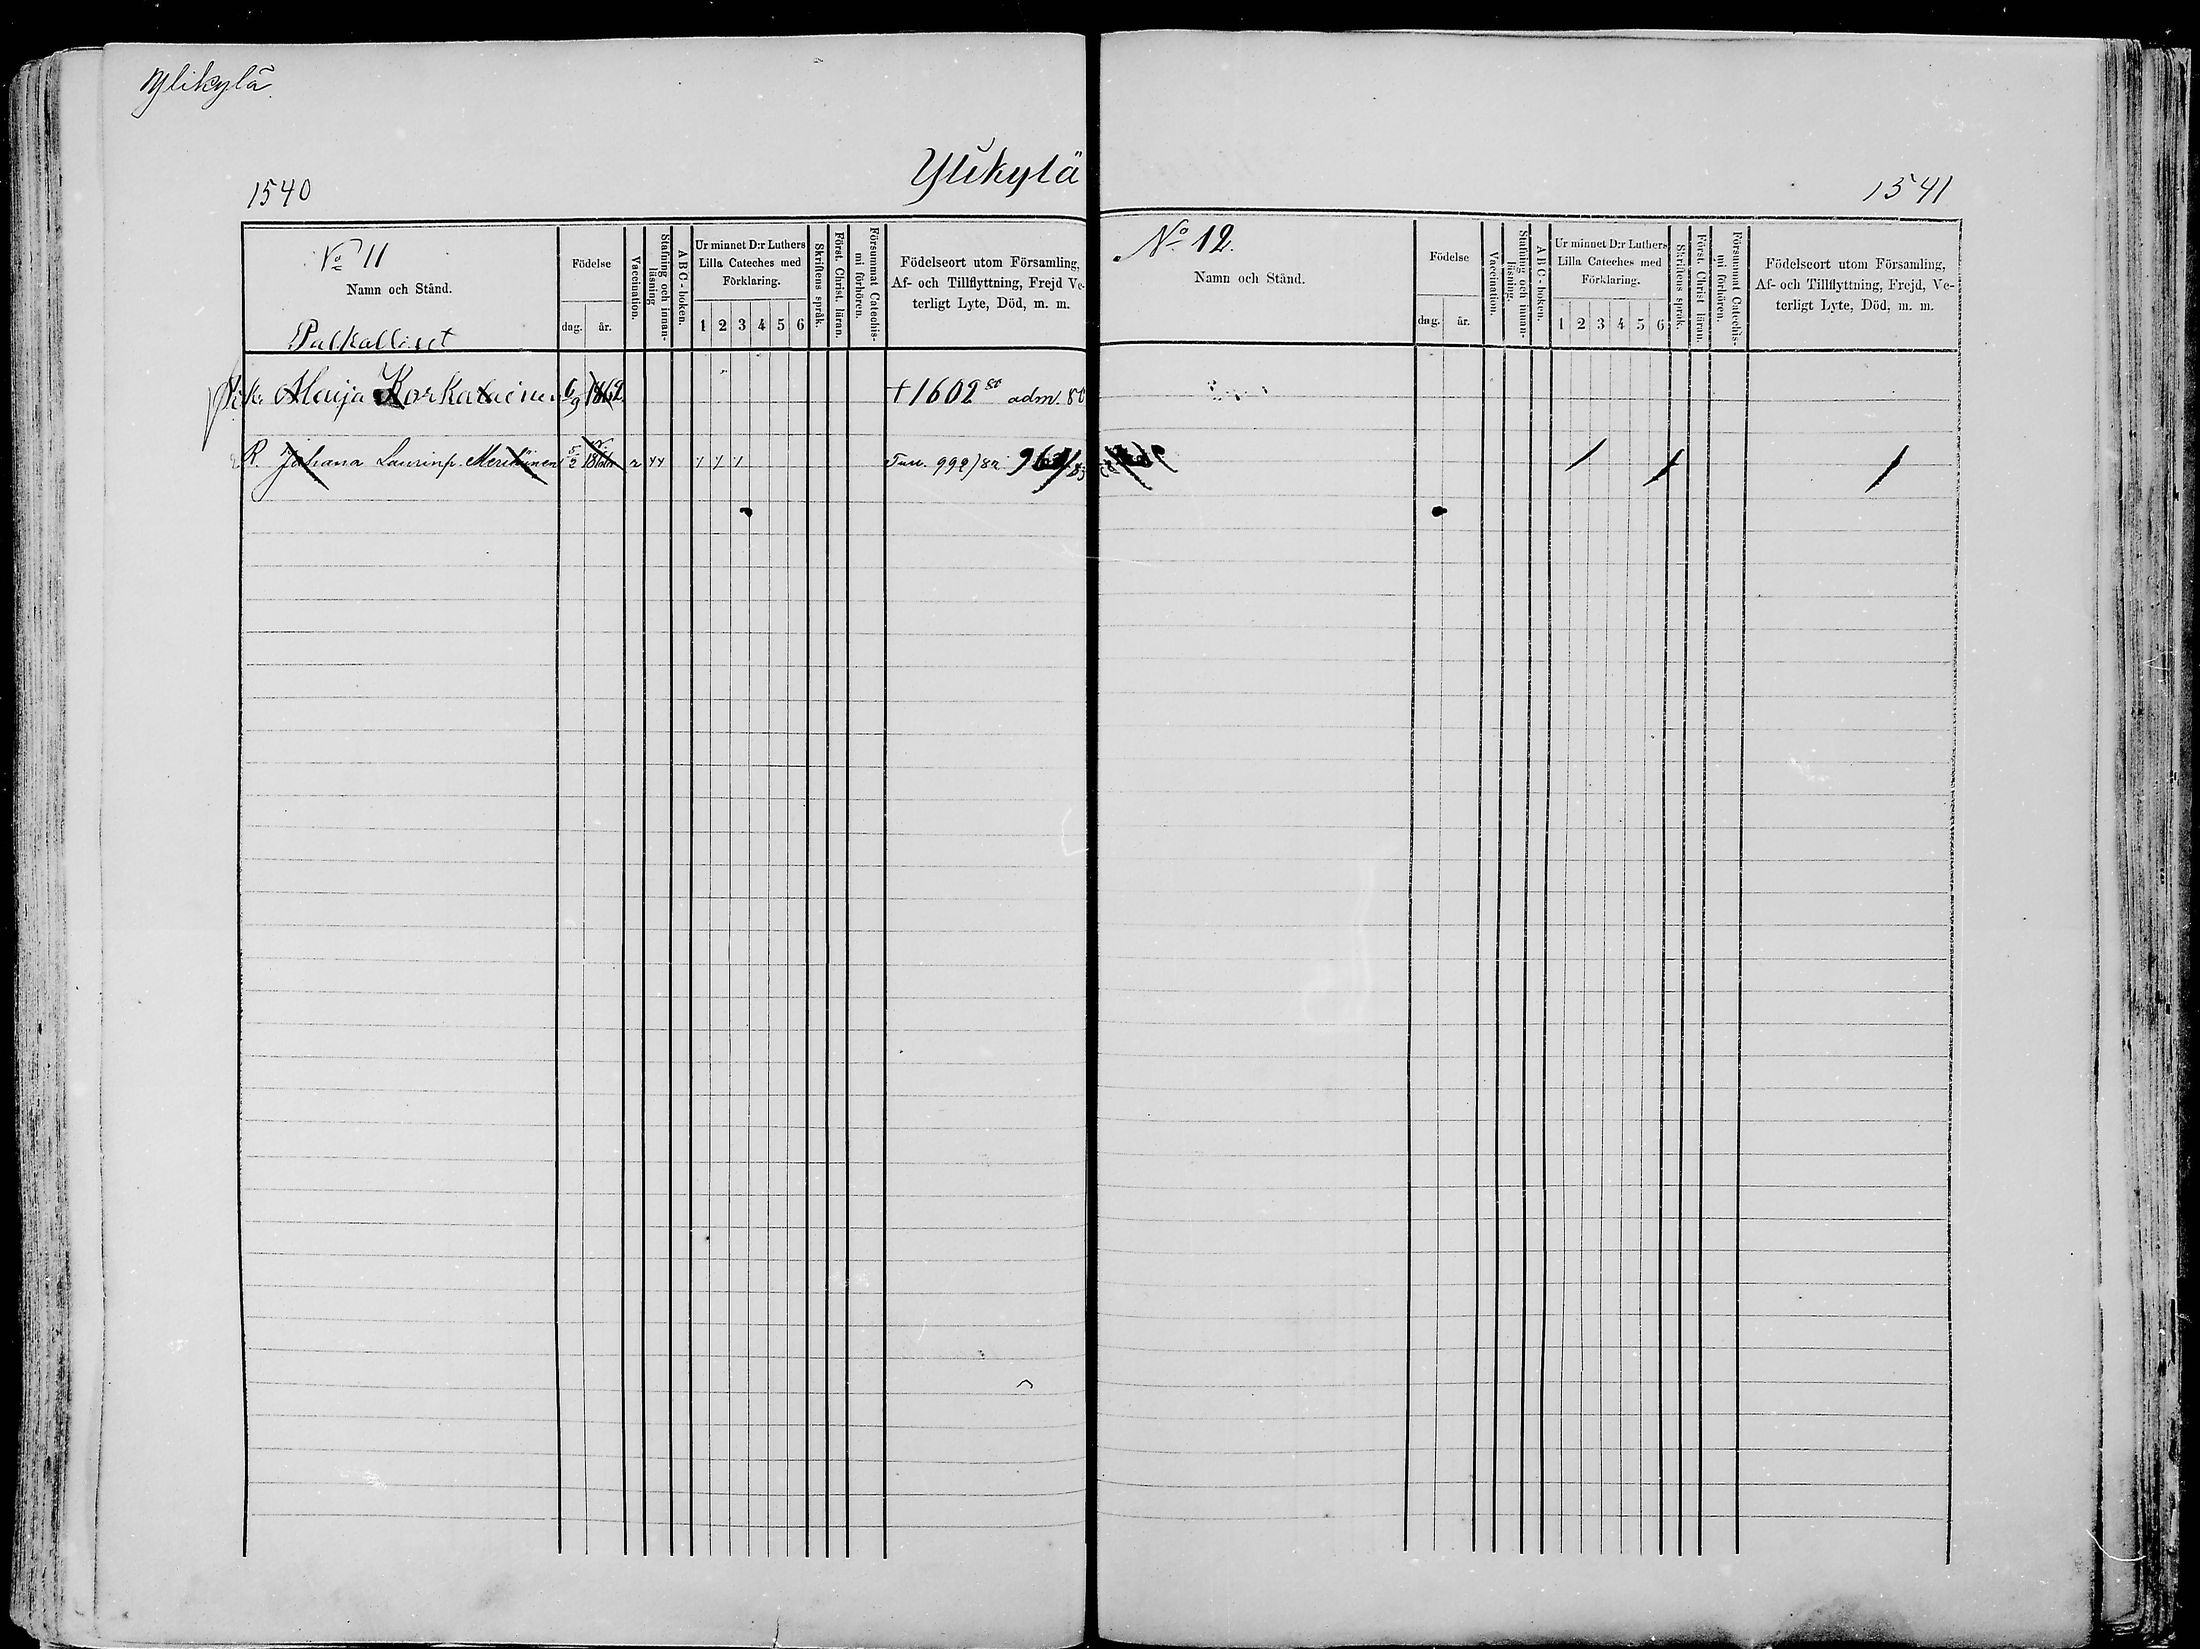 Ylikylä
Ylikylä
1540
No 11
Namn och Stånd.
Palkalliset
Födelse
dag. år.
Vaccination.
Stafning och innan-
läsning
ABC-boken.
Ur minnet D:r Luthers
Lilla Cateches med
Förklaring.
1 2 3 4 5 6
Skriftens språk.
Först. Christ. läran.
Försummat Catechis-
mi förhören.
Födelseort utom Församling,
Af- och Tillflyttning, Frejd Ve-
terligt Lyte, Död, m. m.
Maija Korkalainen 6/9 1862 +1602 80 adm. 80
R. Johana Laurinp. Merikäinen 5/2 992/82
1541
No 12.
Namn och Stånd.
Födelse
dag. år.
Vaccination.
Stafning och innan-
läsning.
ABC-boken.
Ur minnet D:r Luthers
Lilla Cateches med
Förklaring.
1 2 3 4 5 6
Skriftens språk.
Först. Christ läran.
Försummat Catechis-
mi förhören.
Födelseort utom Församling,
Af- och Tillflyttning, Frejd, Ve-
terligt Lyte, Död, m. m.